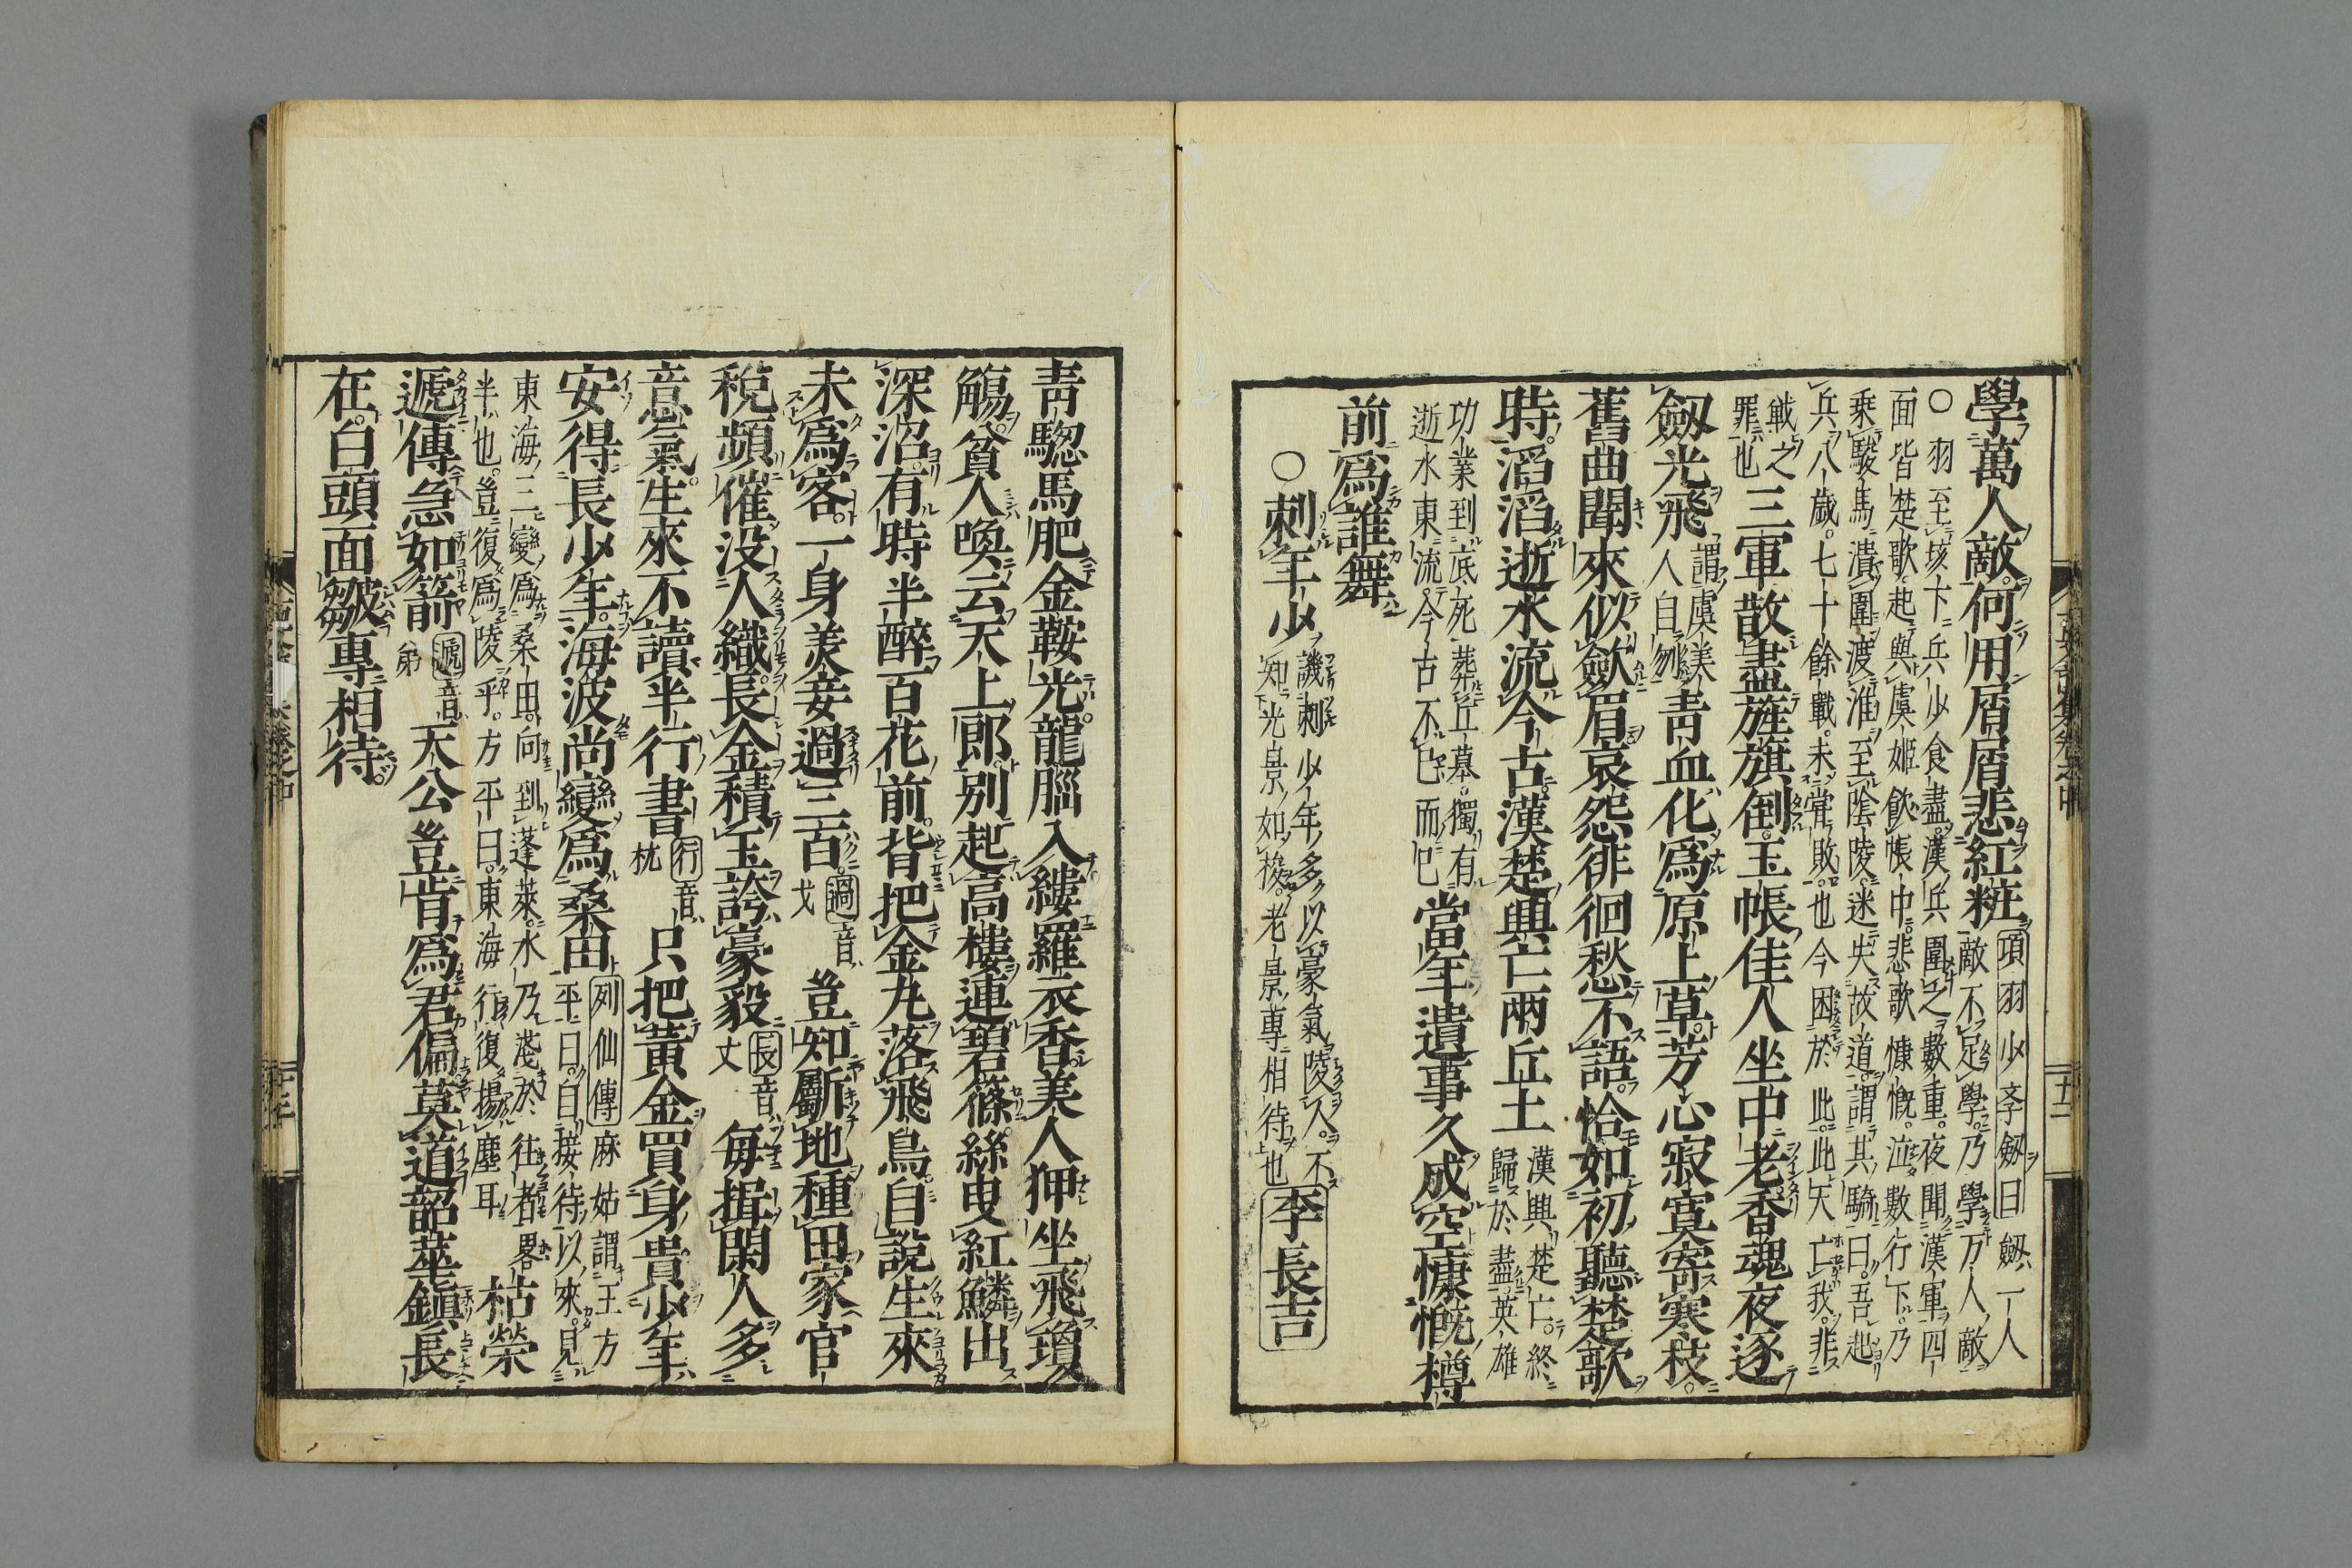 學萬人敵何用屑屑悲紅粧項羽少斈劔曰劔一人
敵不足學乃學万人敵
○羽至垓下兵少食盡漢兵圍之數重夜聞漢軍四
面皆楚歌起與虞姬飲帳中悲歌慷慨泣數行下乃
乗駿馬潰圍渡淮至陰陵迷失故道謂其騎曰吾起
兵八歳七十餘戰未甞敗也今困於此此天亡我非
戰之
罪也三軍散盡旌旗倒玉帳佳人坐中老香魂夜逐
劔光飛謂虞美
人自刎青血化爲原上草芳心寂寞寄寒枝
舊曲聞來似歛眉哀怨徘徊愁不語恰如初聽楚歌
時滔滔逝水流今古漢楚興亡兩丘土漢興楚亡終
歸於盡英雄
功業到底死葬丘墓獨有
逝水東流今古不已而已當年遺事久成空慷慨樽
前爲誰舞
○刺年少譏刺少年多以豪氣陵人不
知光景如梭老景專相待也李長吉
青驄馬肥金鞍光龍腦入縷羅衣香美人狎坐飛瓊
觴貧人喚云天上郎別起高樓連碧篠絲曳紅鱗出
深沼有時半醉百花前背把金丸落飛鳥自説生來
未爲客一身美妾過三百過音
戈豈知斸地種田家官
稅頻催没人織長金積玉誇豪毅長音
丈每揖閑人多
意氣生來不讀半行書行音
杭只把黃金買身貴少年
安得長少年海波尚變爲桑田列仙傳麻姑謂王方
平曰自接待以來見
東海三變爲桑田向到蓬萊水乃淺於往者畧
半也豈復爲陵乎方平曰東海行復揚塵耳枯榮
遞傳急如箭遞音
弟天公豈肯爲君偏莫道韶華鎭長
在白頭面皺專相待